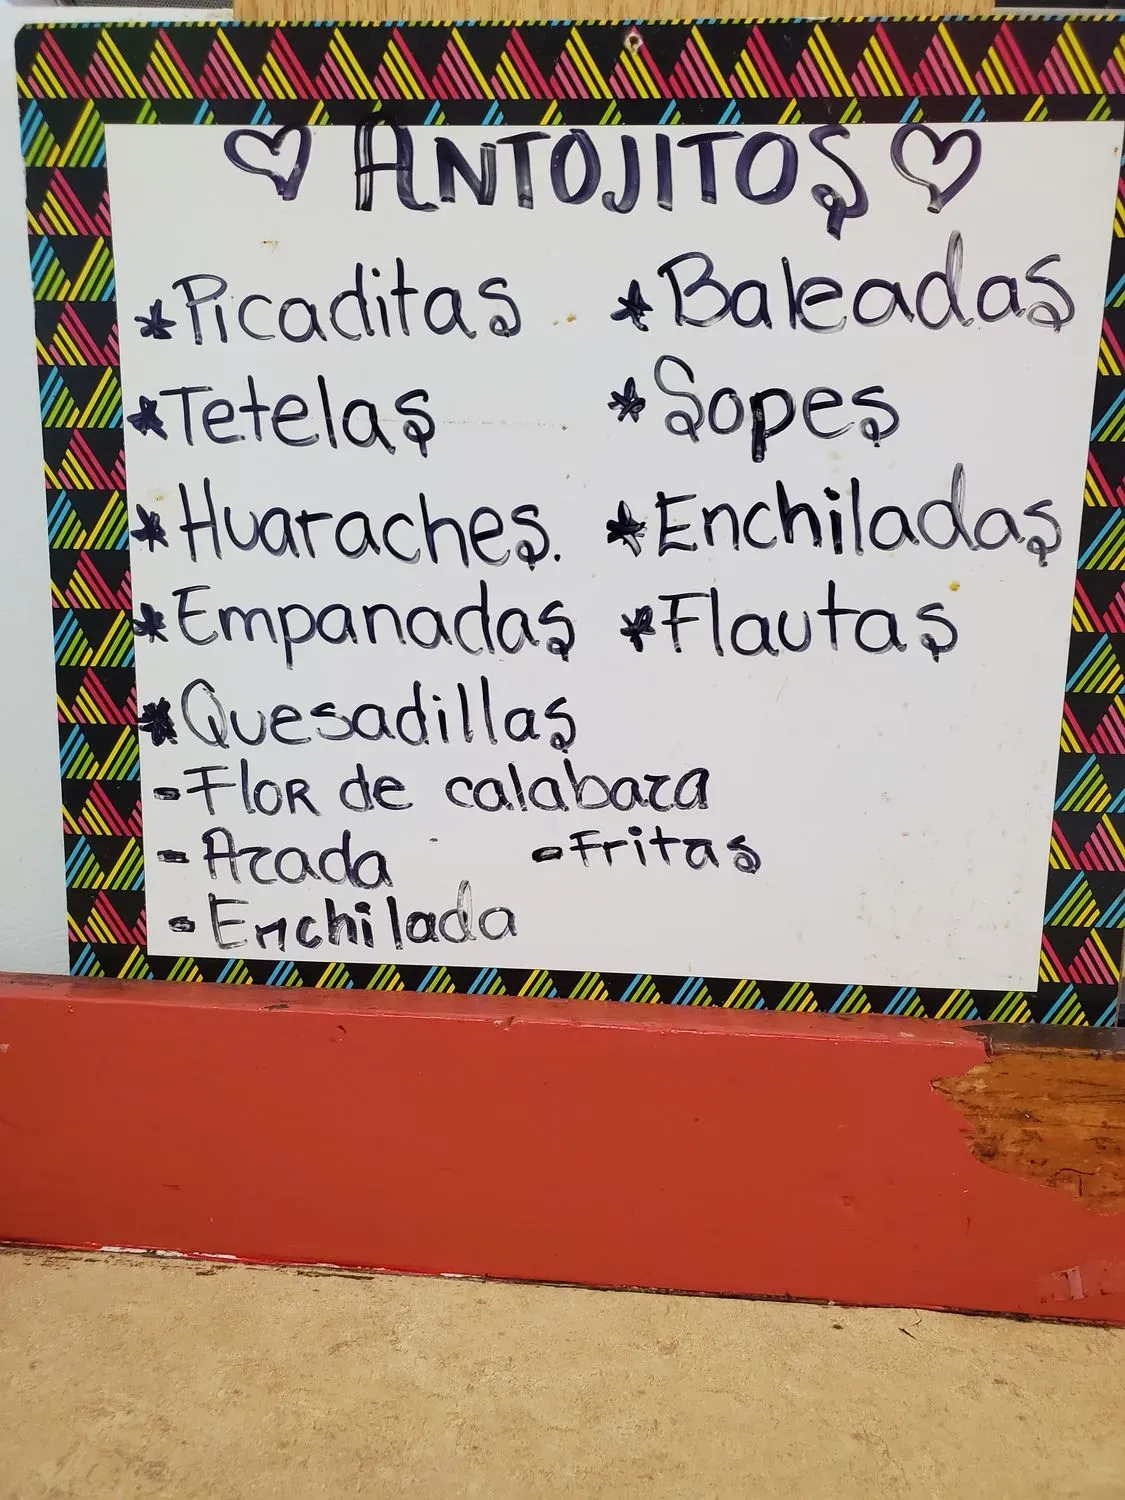 ♡ ANTOJITOS ♡
*Picaditas
*Tetelas
*Huaraches.
*Empanadas
*Quesadillas
-Flor de calabaza
-Azada
-Fritas
-Enchilada
*Baleadas
*Sopes
*Enchiladas
*Flautas